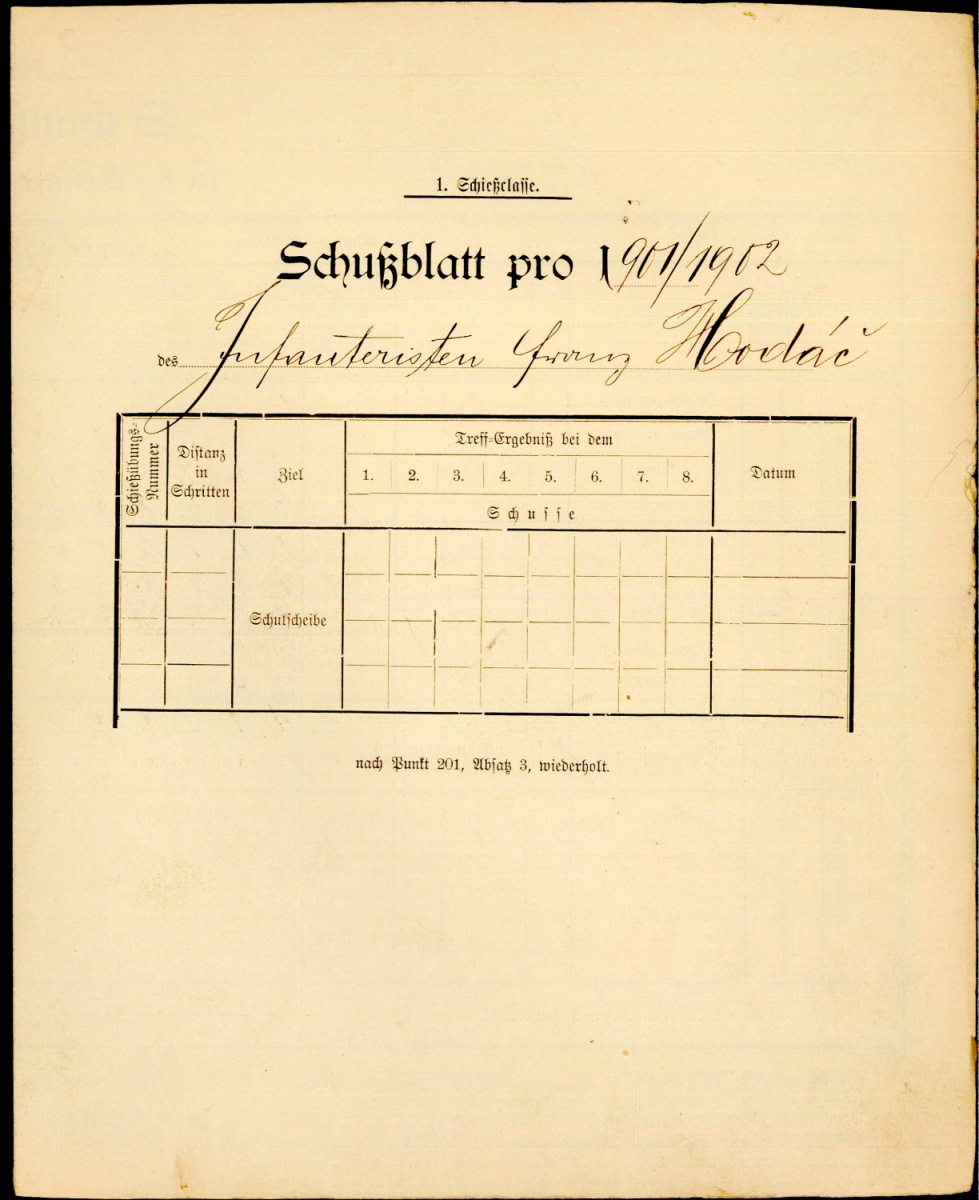 1. Schießclasse.
Schußblatt pro 1901/1902
des Infanteristen Franz Hodáč
Schießübungs-
Nummer
Distanz
in
Schritten
Ziel
Treff-Ergebniß bei dem
1. 2. 3. 4. 5. 6. 7. 8.
Schusse
Datum
Schulscheibe
nach Punkt 201, Absatz 3, wiederholt.